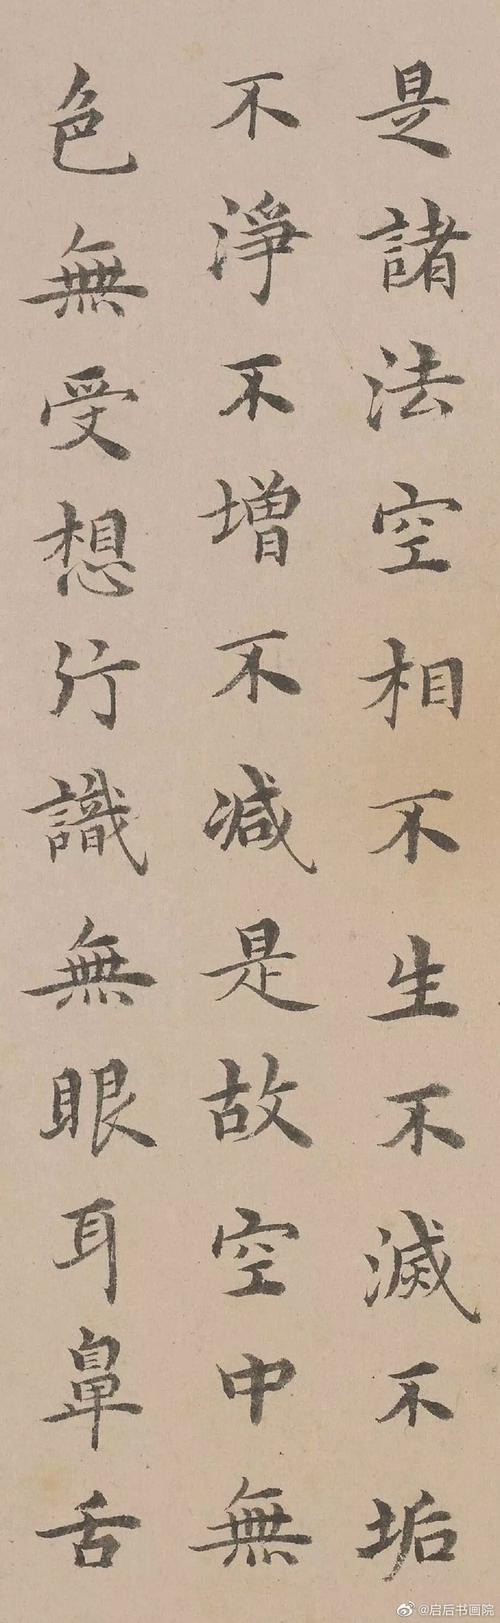 是諸法空相不生不滅不垢
不淨不增不減是故空中無
色無受想行識無眼耳鼻舌
@启后书画院